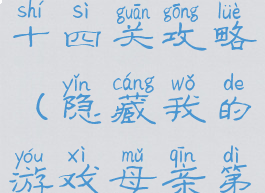 shí sì guān gōng lüè
十四关攻略
yǐn cáng wǒ de
（隐藏我的
yóu xì mǔ qīn dì
游戏母亲第